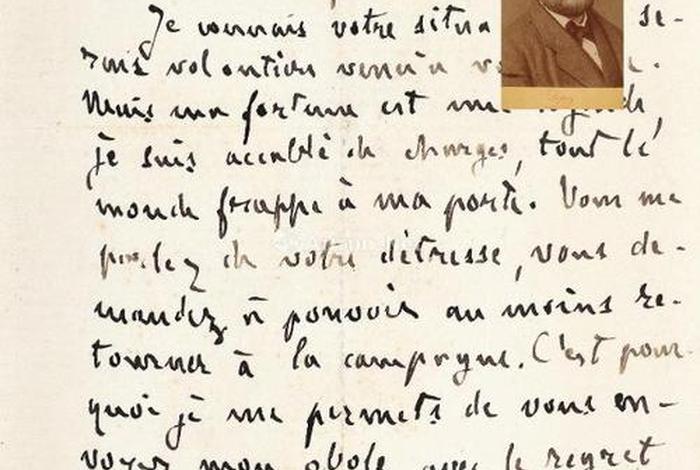 Je connais votre situa se-
rais volontiers venu à
Mais ma fortune est une légende,
je suis accablé de charges, tout le
monde frappe à ma porte. Vous me
parlez de votre détresse, vous de-
mandez à pouvoir au moins re-
tourner à la campagne. C'est pour-
quoi je me permets de vous en-
voyer mon obole avec le regret